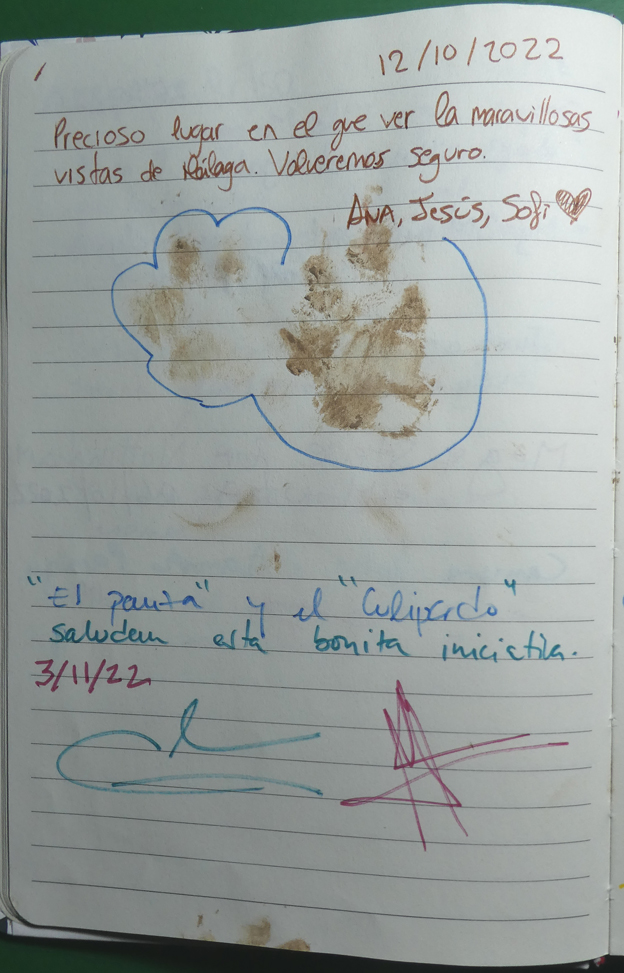 12/10/2022
Precioso lugar en el que ver la maravillosas
vistas de Málaga. Volveremos seguro.
Ana, Jesús, Sofi
"El panza" y el "Culipardo"
saludan esta bonita iniciativa.
3/11/22